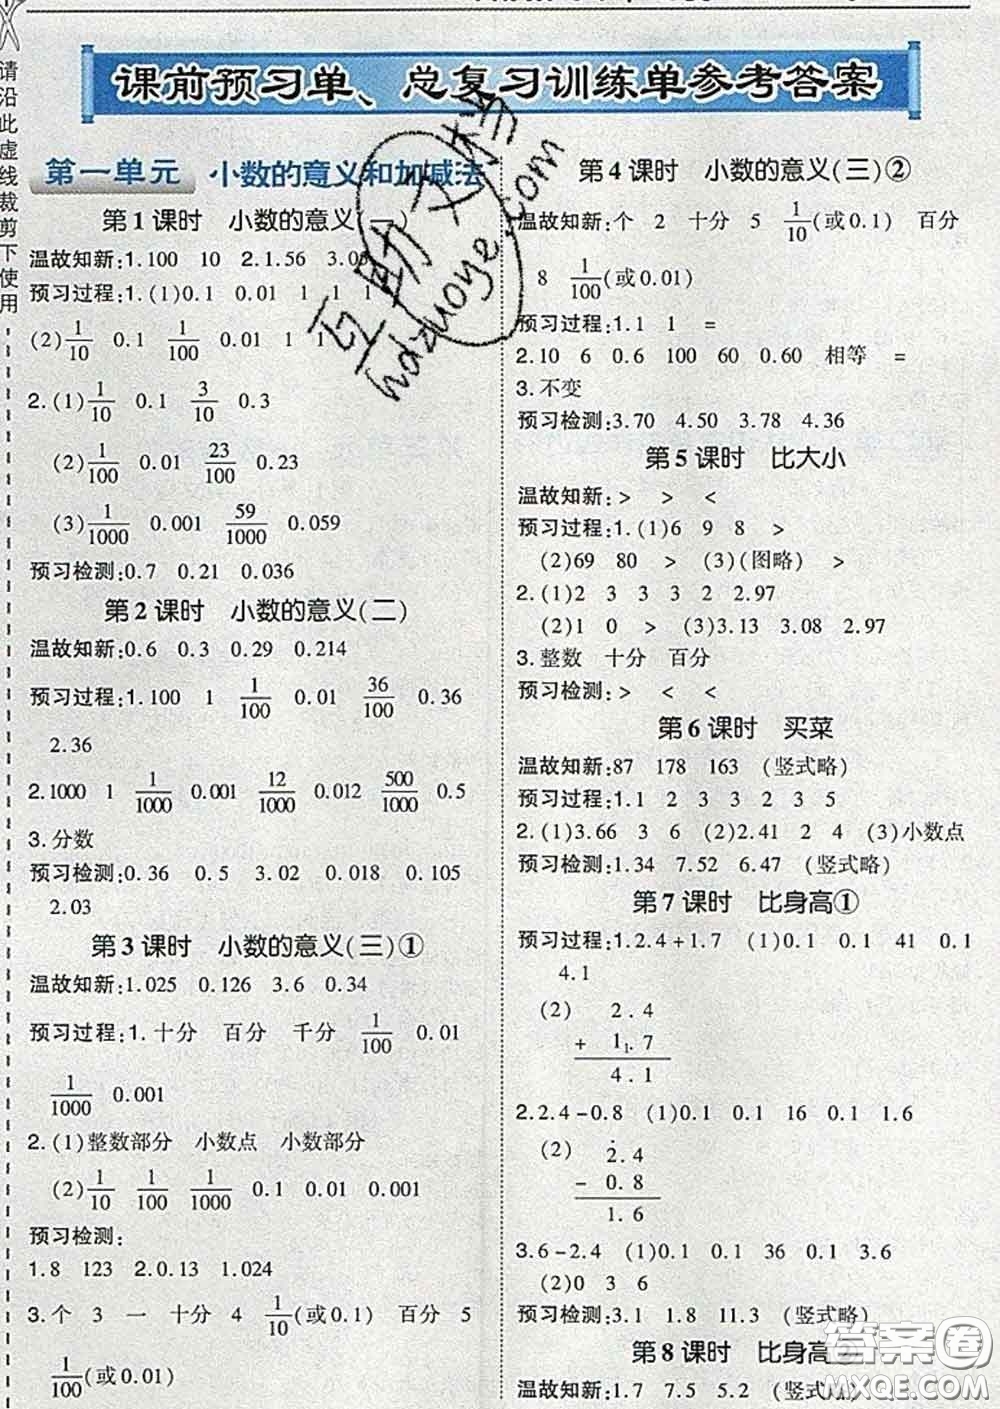 请沿此虚线裁剪下使用
课前预习单、总复习训练单参考答案
第一单元 小数的意义和加减法
第1课时 小数的意义(一)
温故知新:1.100 10 2.1.56 3.05
预习过程:1.(1)0.1 0.01 1 1 1
(2)1/10 0.1 1/100 0.01 1 1
2.(1)1/10 0.1 3/10 0.3
(2)1/100 0.01 23/100 0.23
(3)1/1000 0.001 59/1000 0.059
预习检测:0.7 0.21 0.036
第2课时 小数的意义(二)
温故知新:0.6 0.3 0.29 0.214
预习过程:1.100 1 1/100 0.01 36/100 0.36
2.36
2.1000 1 1/1000 0.001 12/1000 0.012 500/1000 0.5
3.分数
预习检测:0.36 0.5 3.02 0.018 0.105
2.03
第3课时 小数的意义(三)①
温故知新:1.025 0.126 3.6 0.34
预习过程:1.十分 百分 千分 1/100 0.01
1/1000 0.001
2.(1)整数部分 小数点 小数部分
(2)1/10 1/100 1/1000 0.1 0.01 0.001
预习检测:
1.8 123 2.0.13 1.024
3.个 3 一 十分 4 1/10(或0.1) 百分 5
1/100(或0.01)
第4课时 小数的意义(三)②
温故知新:个 2 十分 5 1/10(或0.1) 百分
8 1/100(或0.01)
预习过程:1.1 1 =
2.10 6 0.6 100 60 0.60 相等 =
3.不变
预习检测:3.70 4.50 3.78 4.36
第5课时 比大小
温故知新:> > <
预习过程:1.(1)6 9 8 >
(2)69 80 > (3)(图略) >
2.(1)2 3 3 3 2 2.97
(2)1 0 > (3)3.13 3.08 2.97
3.整数 十分 百分
预习检测:> < <
第6课时 买菜
温故知新:87 178 163 (竖式略)
预习过程:1.1 2 3 3 2 3 5
2.(1)3.66 3 6 (2)2.41 2 4 (3)小数点
预习检测:1.34 7.52 6.47 (竖式略)
第7课时 比身高①
预习过程:1.2.4+1.7 (1)0.1 0.1 41 0.1
4.1
(2) 2.4
+ 1.7
4.1
2.2.4-0.8 (1)0.1 0.1 16 0.1 1.6
(2) 2.4
- 0.8
1.6
3.6-2.4 (1)0.1 0.1 36 0.1 3.6
(2)0 3 6
预习检测:3.1 1.8 11.3 (竖式略)
第8课时 比身高②
温故知新:1.7 7.5 5.2 (竖式略)
互助文档
hdzuoye.com
答案圈
MXQE.COM